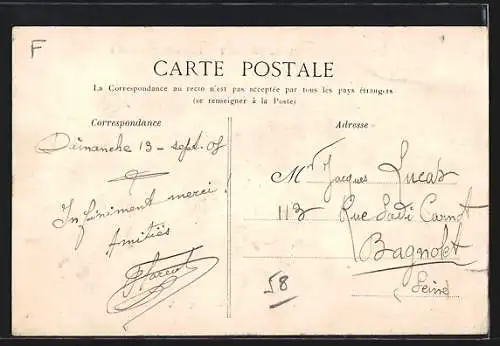 F
CARTE POSTALE
La Correspondance au recto n'est pas acceptée par tous les pays étrangers
(se renseigner à la Poste)
Correspondance
Adresse
Dimanche 13 - sept. 08
Infiniment merci !
Amitiés
Mr Jacques Lucas
113 Rue Sadi Carnot
Bagnolet
Seine
58